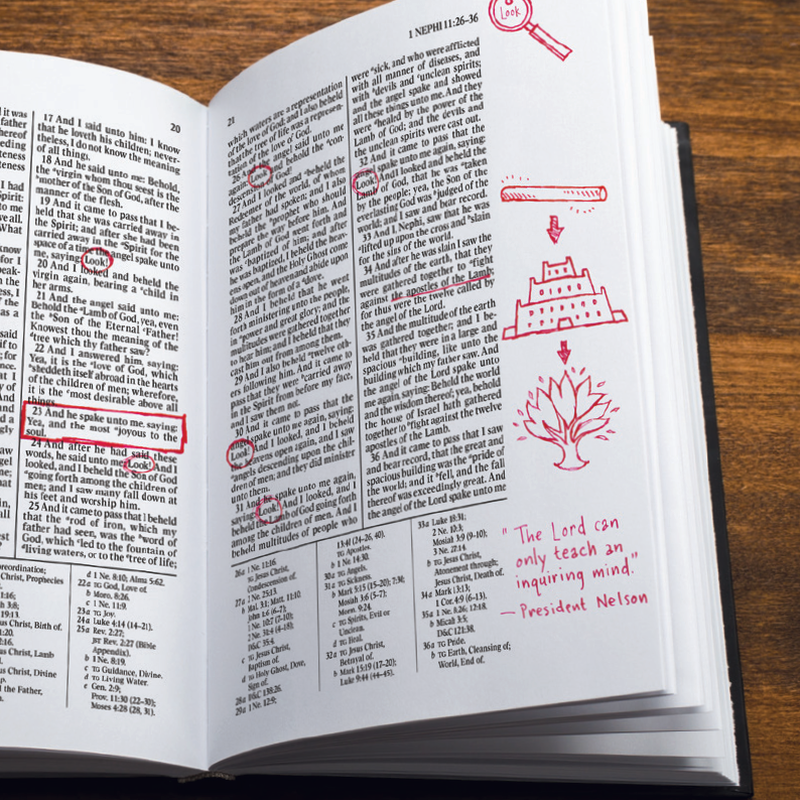 it was
father
hereof
eeding
teness
teness
I had
Spirit:
to me
ve all.
What
know
peak-
n the
ess, I
f the
as a
said
for
it
nd
20
17 And I said unto him: I know
that he loveth his children; never-
theless, I do not know the meaning
of all things.
18 And he said unto me: Behold,
the virgin whom thou seest is the
mother of the Son of God, after the
manner of the flesh.
19 And it came to pass that I be-
held that she was carried away in
the Spirit; and after she had been
carried away in the Spirit for the
space of a time the angel spake unto
me, saying: Look!
20 And I looked and beheld the
virgin again, bearing a child in
her arms.
21 And the angel said unto me:
Behold the Lamb of God, yea, even
the Son of the Eternal Father!
Knowest thou the meaning of the
tree which thy father saw?
22 And I answered him, saying:
Yea, it is the love of God, which
sheddeth itself abroad in the hearts
of the children of men; wherefore,
it is the most desirable above all
things.
23 And he spake unto me, saying:
Yea, and the most joyous to the
soul.
24 And after he had said these
words, he said unto me: Look! And I
looked, and I beheld the Son of God
going forth among the children of
men; and I saw many fall down at
his feet and worship him.
25 And it came to pass that I beheld
that the rod of iron, which my
father had seen, was the word of
God, which led to the fountain of
living waters, or to the tree of life;
d 1 Ne. 8:10; Alma 5:62.
22a TG God, Love of.
b Moro. 8:26.
c 1 Ne. 11:9.
23a TG Joy.
24a Luke 4:14 (14–21).
25a Rev. 2:27;
JST Rev. 2:27 (Bible
Appendix).
b 1 Ne. 8:19.
c TG Guidance, Divine.
d TG Living Water.
e Gen. 2:9;
Prov. 11:30 (22–30);
Moses 4:28 (28, 31).
21
1 NEPHI 11:26–36
which waters are a representation
of the love of God; and I also beheld
that the tree of life was a represen-
tation of the love of God.
26 And the angel said unto me
again: Look and behold the con-
descension of God!
27 And I looked and beheld the
Redeemer of the world, of whom
my father had spoken; and I also
beheld the prophet who should
prepare the way before him. And
the Lamb of God went forth and
was baptized of him; and after
he was baptized, I beheld the heav-
ens open, and the Holy Ghost come
down out of heaven and abide upon
him in the form of a dove.
28 And I beheld that he went
forth ministering unto the people,
in power and great glory; and the
multitudes were gathered together
to hear him; and I beheld that they
cast him out from among them.
29 And I also beheld twelve oth-
ers following him. And it came to
pass that they were carried away
in the Spirit from before my face,
and I saw them not.
30 And it came to pass that the
angel spake unto me again, saying:
Look! And I looked, and I beheld
the heavens open again, and I saw
angels descending upon the chil-
dren of men; and they did minister
unto them.
31 And he spake unto me again,
saying: Look! And I looked, and I
beheld the Lamb of God going forth
among the children of men. And I
beheld multitudes of people who
were sick, and who were afflicted
with all manner of diseases, and
with devils and unclean spirits;
and the angel spake and showed
all these things unto me. And they
were healed by the power of the
Lamb of God; and the devils and
the unclean spirits were cast out.
32 And it came to pass that the
angel spake unto me again, saying:
Look! And I looked and beheld the
Lamb of God, that he was taken
by the people; yea, the Son of the
everlasting God was judged of the
world; and I saw and bear record.
33 And I, Nephi, saw that he was
lifted up upon the cross and slain
for the sins of the world.
34 And after he was slain I saw the
multitudes of the earth, that they
were gathered together to fight
against the apostles of the Lamb;
for thus were the twelve called by
the angel of the Lord.
35 And the multitude of the earth
was gathered together; and I be-
held that they were in a large and
spacious building, like unto the
building which my father saw. And
the angel of the Lord spake unto
me again, saying: Behold the world
and the wisdom thereof; yea, behold
the house of Israel hath gathered
together to fight against the twelve
apostles of the Lamb.
36 And it came to pass that I saw
and bear record, that the great and
spacious building was the pride of
the world; and it fell, and the fall
thereof was exceedingly great. And
the angel of the Lord spake unto me
26a 1 Ne. 11:16.
b TG Jesus Christ,
Condescension of.
27a 2 Ne. 25:13.
c TG Jesus Christ,
Baptism of.
d TG Holy Ghost, Dove,
Sign of.
28a D&C 138:26.
29a 1 Ne. 12:9;
13:41 (24–26, 40).
TG Apostles.
b 1 Ne. 14:30.
30a TG Angels.
31a TG Sickness.
b Mark 5:15 (15–20); 7:30;
Mosiah 3:6 (5–7);
Moro. 9:24.
c TG Spirits, Evil or
Unclean.
d TG Heal.
32a TG Jesus Christ,
Betrayal of.
b Mark 15:19 (17–20);
Luke 9:44 (44–45).
33a Luke 18:31;
2 Ne. 10:3;
Mosiah 3:9 (9–10);
3 Ne. 27:14.
b TG Jesus Christ,
Atonement through;
Jesus Christ, Death of.
34a Mark 13:13;
1 Cor. 4:9 (6–13).
35a 1 Ne. 8:26; 12:18.
b Micah 3:5;
D&C 121:38.
36a TG Pride.
b TG Earth, Cleansing of;
World, End of.
Look
"The Lord can
only teach an
inquiring mind."
— President Nelson